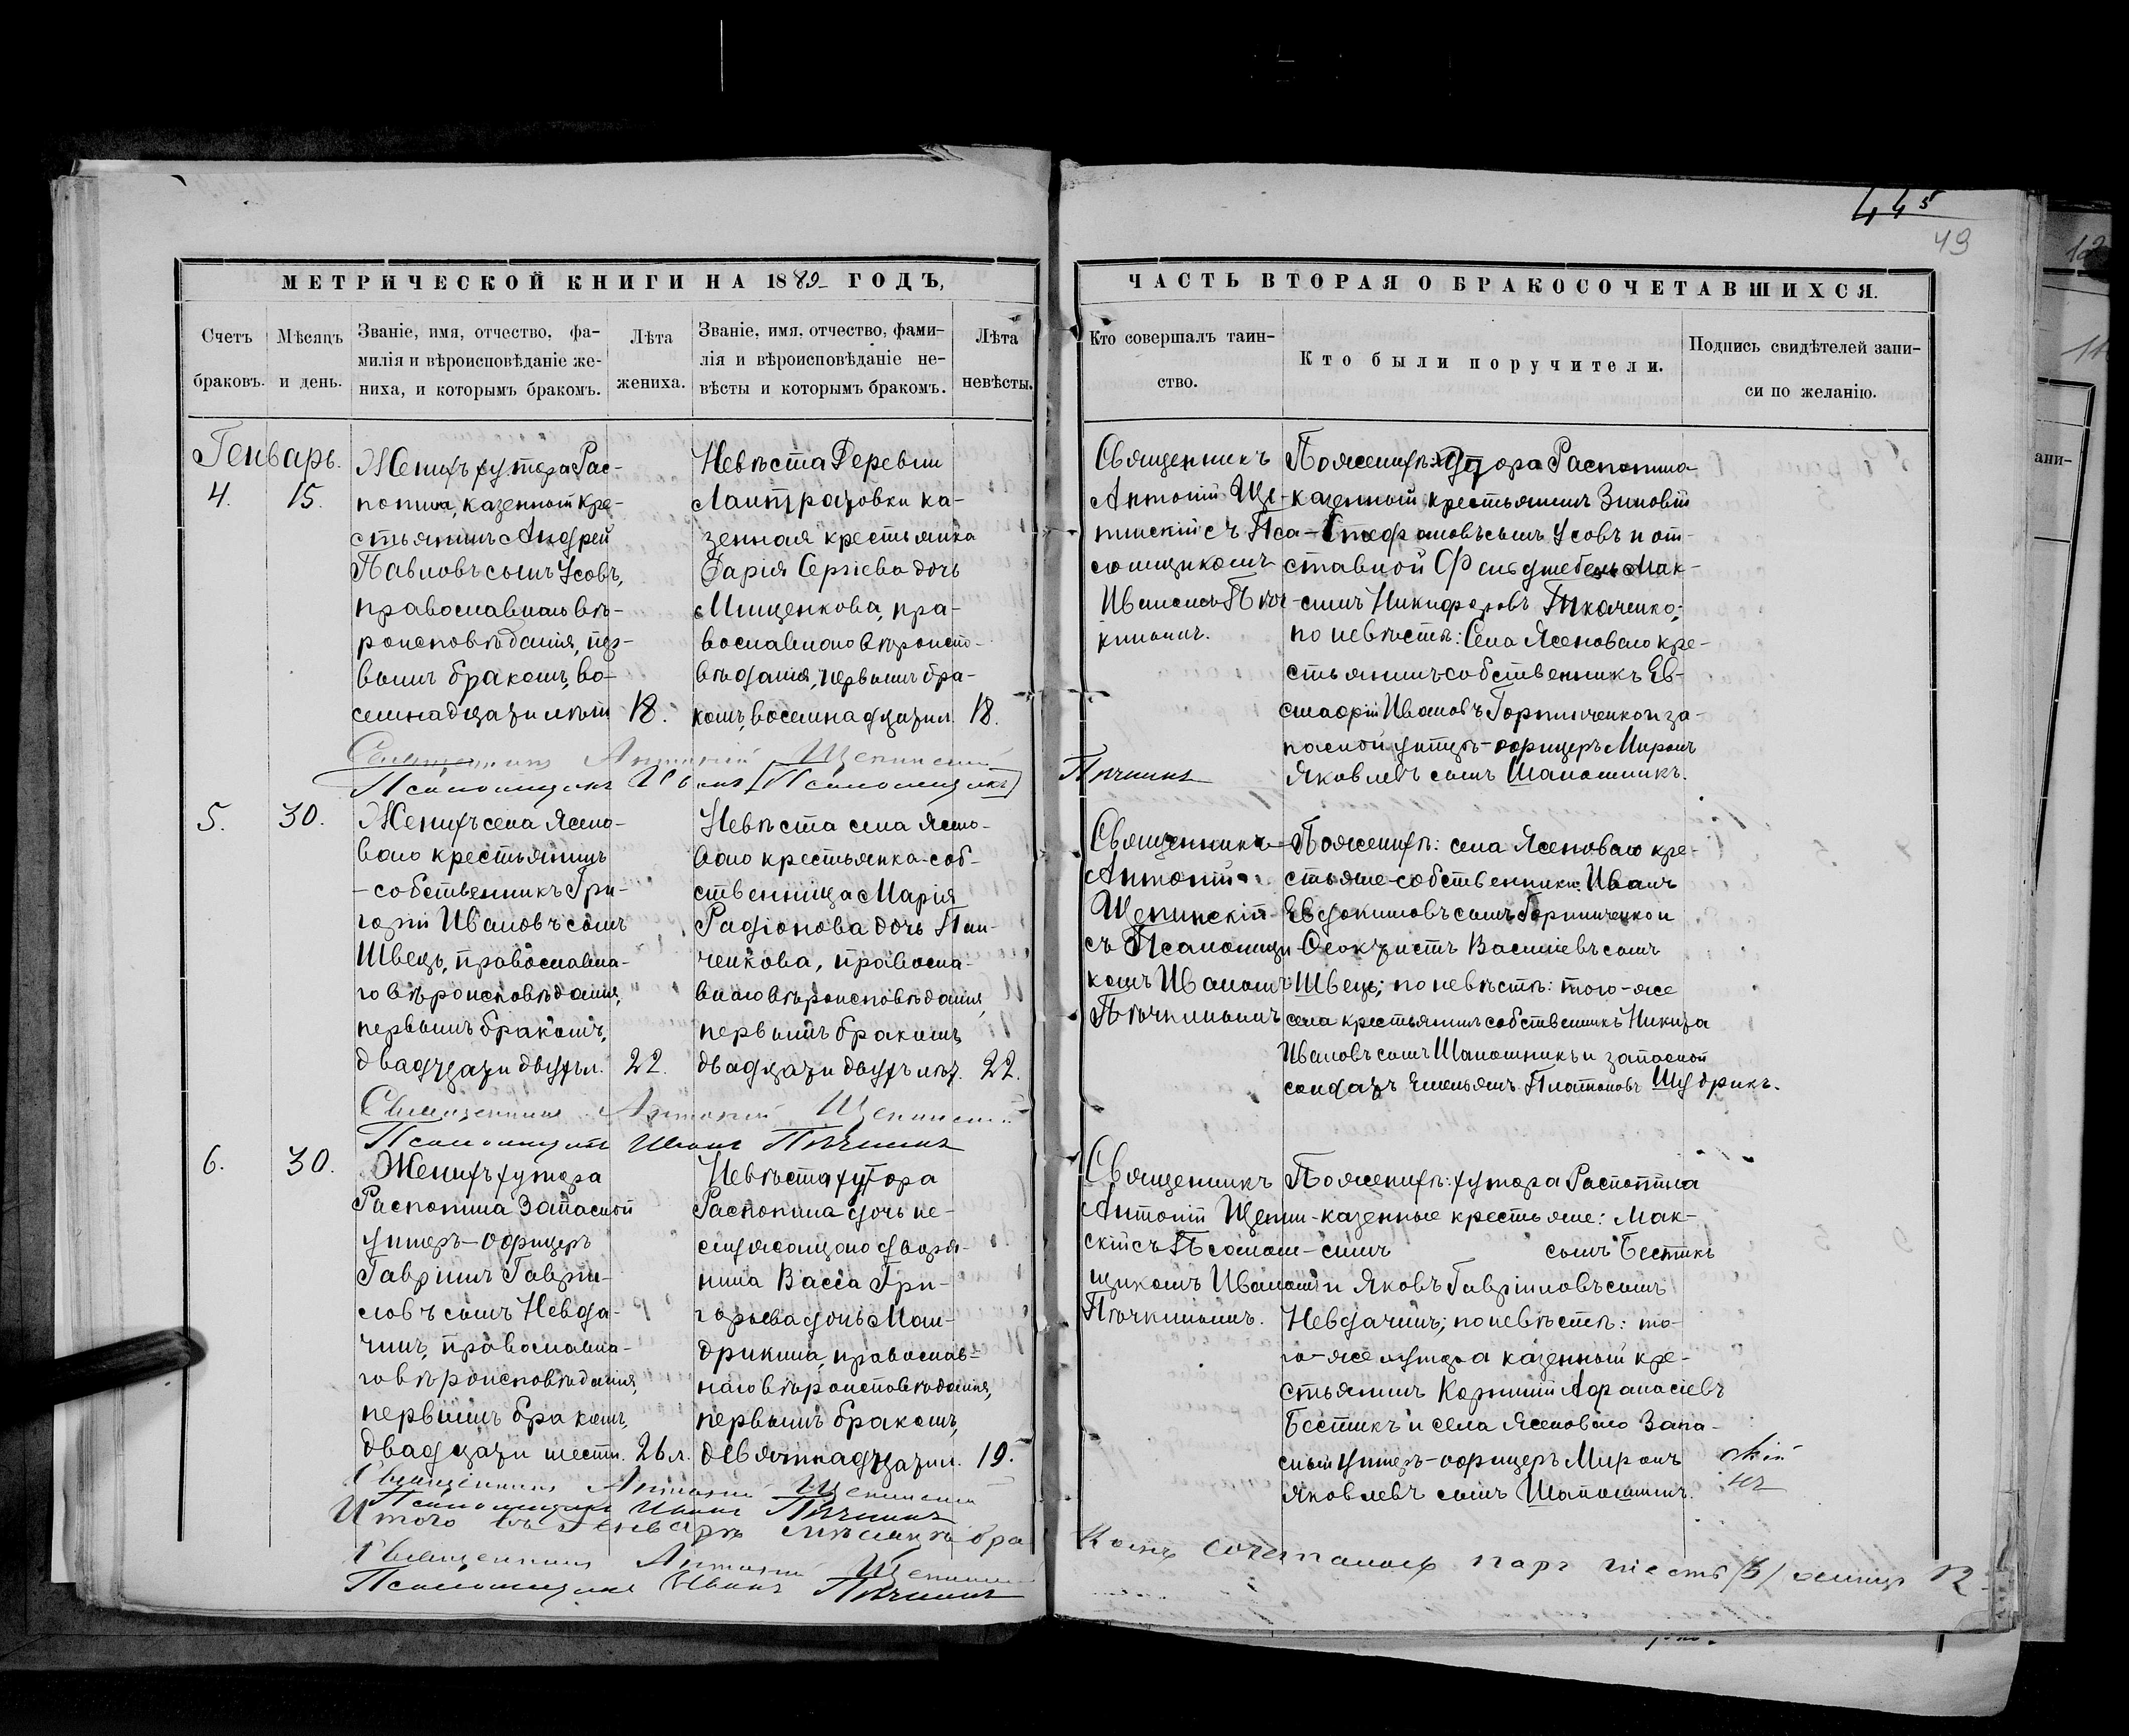 445
49
МЕТРИЧЕСКОЙ КНИГИ НА 1889 ГОДЪ,
Счетъ браковъ.
Мѣсяцъ и день.
Званіе, имя, отчество, фа-
милія и вѣроисповѣданіе же-
ниха, и которымъ бракомъ.
Лѣта жениха.
Званіе, имя, отчество, фами-
лія и вѣроисповѣданіе не-
вѣсты и которымъ бракомъ.
Лѣта невѣсты.
Генварь.
4.
15.
Женихъ хутора Рас-
попина, казенный кре-
стьянинъ Андрей
Павловъ сынъ Усовъ,
православнаго вѣ-
роисповѣданія, пер-
вымъ бракомъ, во-
семнадцати лѣтъ
18.
Невѣста Деревни
ка-
зенная крестьянка
Дарія Сергіева дочь
Мищенкова, пра-
вославнаго вѣроиспо-
вѣданія, первымъ бра-
комъ, восемнадцати л.
18.
Священникъ Антоній Щепинскій
Псаломщикъ Иванъ [Псаломщикъ]
5.
30.
Женихъ села Ясено-
ваго крестьянинъ
-собственникъ Гри-
горій Ивановъ сынъ
Швецъ, православна-
го вѣроисповѣданія,
первымъ бракомъ,
двадцати двухъ л.
22.
Невѣста села Ясено-
ваго крестьянка-соб-
ственница Марія
Радіонова дочь Пан-
ченкова, правосла-
внаго вѣроисповѣданія,
первымъ бракомъ,
двадцати двухъ лѣт.
22.
Священникъ Антоній Щепинскій
Псаломщикъ Иванъ Пѣчкинъ
6.
30.
Женихъ хутора
Распопина Запасной
унтеръ-офицеръ
Гавріилъ Гаврі-
ловъ сынъ Невда-
чинъ, православна-
го вѣроисповѣданія,
первымъ бракомъ,
двадцати шести.
26 л.
Невѣста хутора
Распопина дочь не-
служащаго дворя-
нина Васса Гри-
горьева дочь Ман-
дрикина, православ-
наго вѣроисповѣданія,
первымъ бракомъ,
девятнадцати л.
19.
Священникъ Антоній Щепинскій
Псаломщикъ Иванъ Пѣчкинъ
Итого въ Генварѣ мѣсяцѣ бра
Священникъ Антоній Щепинскій
Псаломщикъ Иванъ Пѣчкинъ
ЧАСТЬ ВТОРАЯ О БРАКОСОЧЕТАВШИХСЯ.
Кто совершалъ таин-
ство.
Кто были поручители.
Подпись свидѣтелей запи-
си по желанію.
Священникъ
Антоній Ще-
пинскій съ Пса-
ломщикомъ
Иваномъ Пѣч-
кинымъ.
По женихѣ: хутора Распопина
казенный крестьянинъ Зиновій
Стефановъ сынъ Усовъ и от-
ставной Фельдшебель Мак-
симъ Никифоровъ Ткаченко;
по невѣстѣ: Села Ясеноваго кре-
стьянинъ-собственникъ Ев-
стафій Ивановъ Горпинченко и за-
пасной унтеръ-офицеръ Миронъ
Яковлевъ сынъ Шапошникъ.
Пѣчкинъ
Священникъ
Антоній
Щепинскій
съ Псаломщи-
комъ Иваномъ
Пѣчкинымъ
По женихѣ: села Ясеноваго кре-
стьяне-собственники: Иванъ
Евдокимовъ сынъ Горпинченко и
Феоктистъ Василіевъ сынъ
Швецъ; по невѣстѣ: того-же
села крестьянинъ собственникъ Никита
Ивановъ сынъ Шапошникъ и запасной
солдатъ Емельянъ Платоновъ Щудрикъ.
Священникъ
Антоній Щепин-
скій съ Псалом-
щикомъ Иваномъ
Пѣчкинымъ.
По женихѣ: хутора Распопина
казенные крестьяне: Мак-
симъ сынъ Бестикъ
и Яковъ Гавріиловъ сынъ
Невдачинъ; по невѣстѣ: то-
го-же хутора казенный кре-
стьянинъ Корнилій Афанасіевъ
Бестикъ и села Ясеноваго Запа-
сный унтеръ-офицеръ Миронъ
Яковлевъ сынъ Шапошникъ.
скій
нъ
комъ сочеталось паръ шесть /6/ 12
ани-